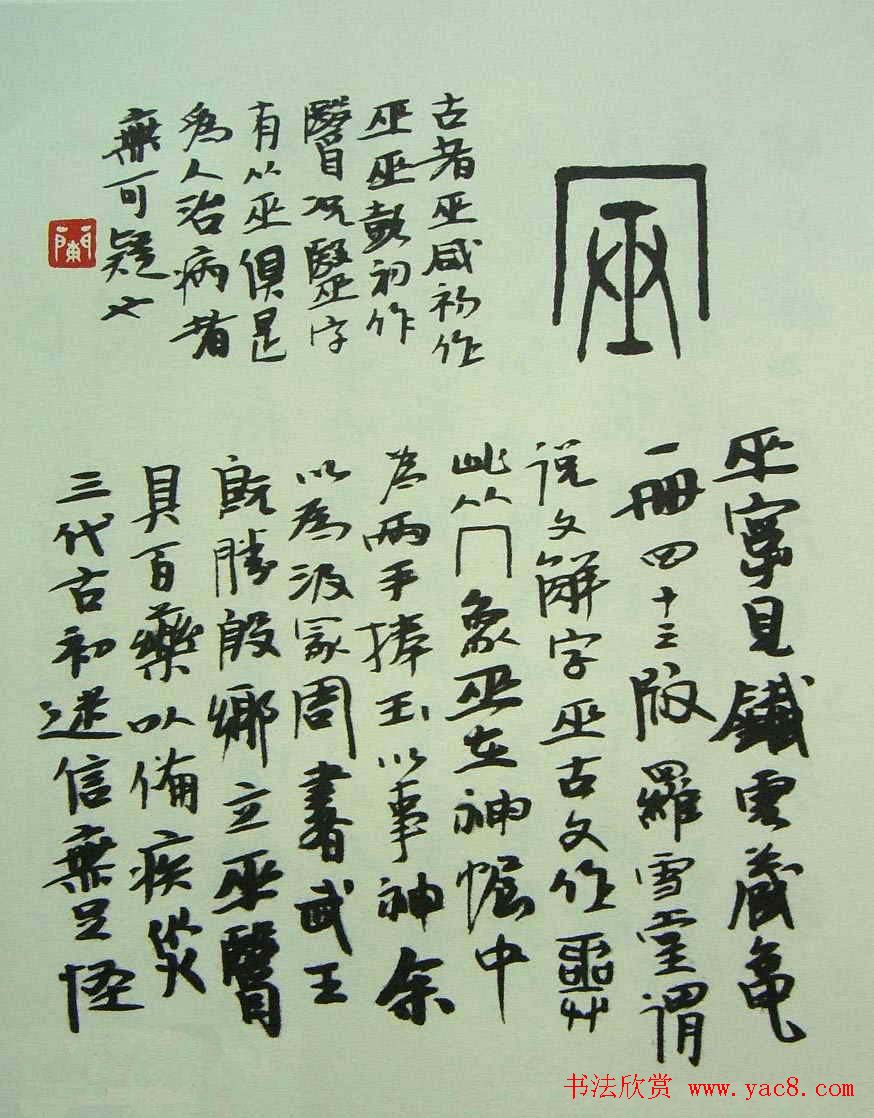 巫見鐵雲藏龜
一冊四十三版羅雪堂謂
说文解字巫古文作𢍮
此从冂象巫在神幄中
为兩手捧玉以事神余
以為汲冢周書武王
既勝殷鄉立巫醫
具百藥以備疾災
三代古初迷信無足怪
古者巫咸初作
巫巫彭初作
醫况毉字
有从巫俱是
為人治病者
無可疑也
书法欣赏 www.yac8.com